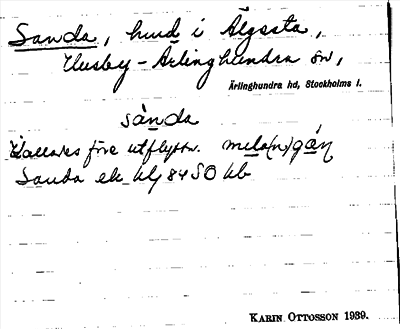 Sanda, hmd i Älgesta,
Husby-Ärlinghundra sn,
Ärlinghundra hd, Stockholms l.
sànda
Kallades före utflyttn. mela(n)gån
Sanda ek blj 84 SO hb
Karin Ottosson 1939.